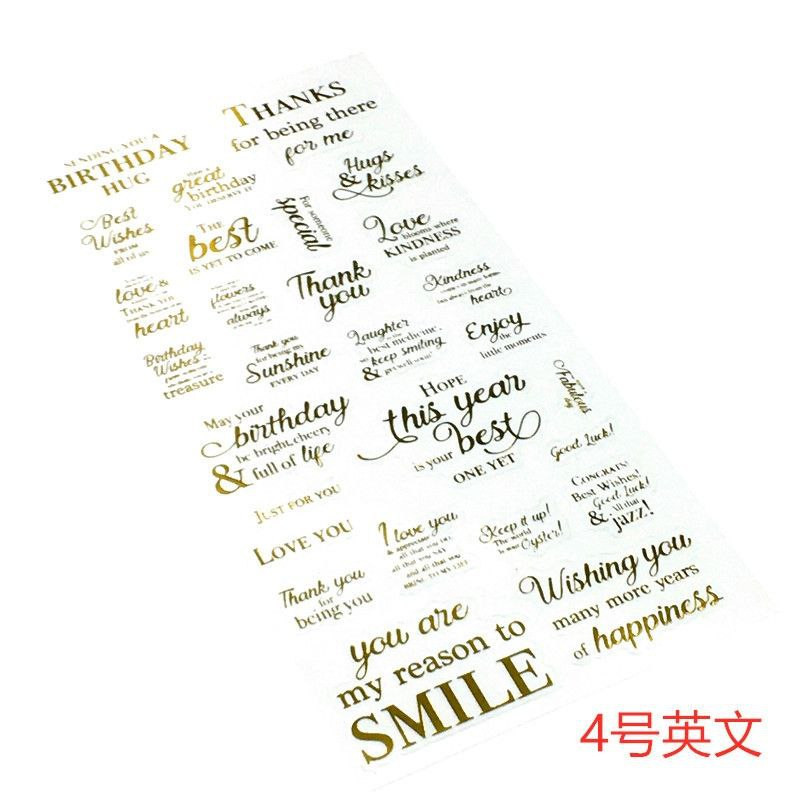 SENDING YOU A
BIRTHDAY
HUG
THANKS
for being there
for me
Have a
great
birthday
YOU DESERVE IT
Hugs
& kisses
Best
Wishes
FROM
all of us
THE
best
IS YET TO COME
For someone
special
Love
blooms where
KINDNESS
is planted
love &
THANK YOU
heart
flowers
always
Thank
you
Kindness
heart
Birthday
Wishes
treasure
Thank you
for being my
Sunshine
EVERY DAY
Laughter
best medicine,
keep smiling
&
Enjoy
the
little moments
May your
birthday
be bright, cheery
& full of life
HOPE
this year
is your best
ONE YET
Fabulous
day
Good Luck!
JUST FOR YOU
LOVE YOU
I love you
& appreciate
all that you DO
all that you SAY
and all that you
BRING TO MY LIFE
Keep it up!
The world
is your Oyster!
CONGRATS!
Best Wishes!
Good Luck!
& all that
jazz!
Thank you
for
being you
you are
my reason to
SMILE
Wishing you
many more years
of happiness
4号英文